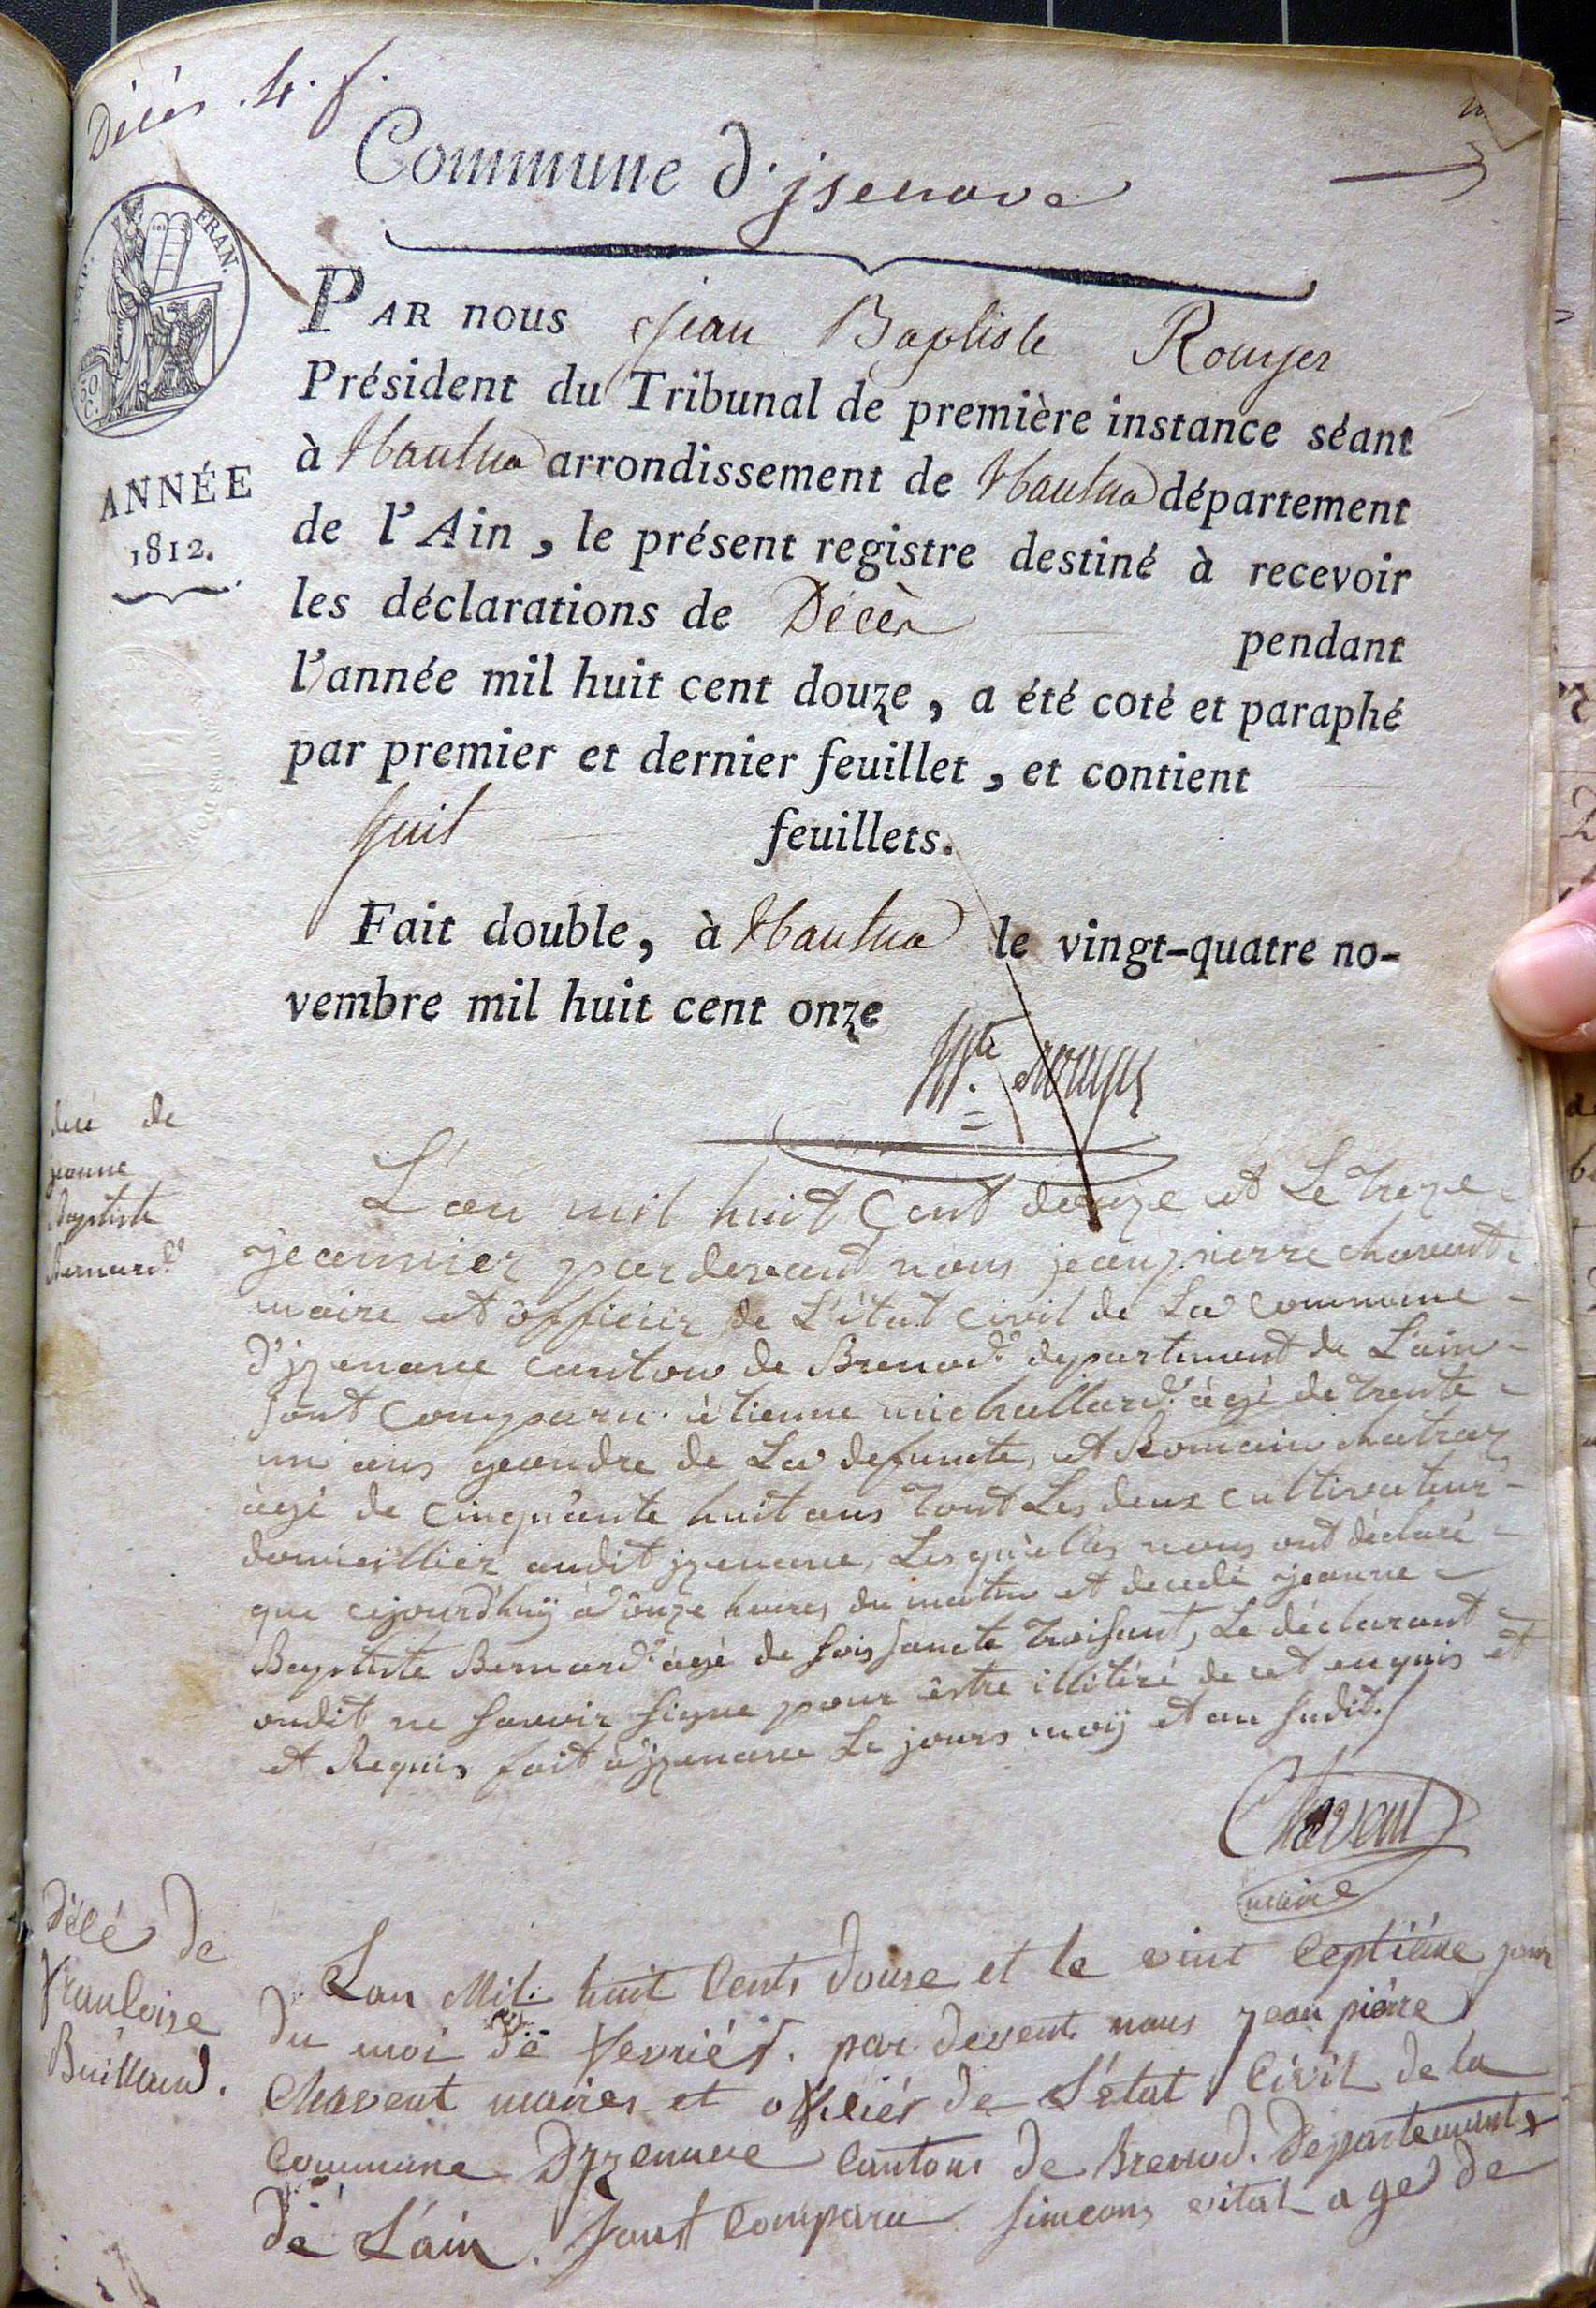 Décès . 4. f.
Commune d'jsenave
EMP. FRAN.
50 C.
PAR nous Jean Baptiste Rouyer
Président du Tribunal de première instance séant
à Nantua arrondissement de Nantua département
de l'Ain, le présent registre destiné à recevoir
les déclarations de Décès pendant
l'année mil huit cent douze, a été coté et paraphé
par premier et dernier feuillet, et contient
huit feuillets.
Fait double, à Nantua le vingt-quatre no-
vembre mil huit cent onze
ANNÉE
1812.
J.B.te Rouyer
decé de
jeanne
Baptiste
Bernard
L'an mil huit Cent douze et Le treze
jeanvier pardevant nous jean pierre chavent
maire et officier de L'état civil de La commune
d'jzenave canton de Brenod departement de L'ain
sont comparu étienne michallard âgé de trente
un ans geandre de La defuncte, et Romain chatraz
âgé de cinquante huit ans tout Les deux cultivateur
domicillier audit jzenave, Les quelles nous ont déclaré
que cejourd'huÿ à onze heures du matin et decedé jeanne
Baptiste Bernard âgé de soissancte troisant, Le déclarant
ondit ne savoir signe pour êstre illitéré de cet enquis et
et Requis fait à jzenave Le jours moÿ et an sudit./
Chavent
maire
Décé de
francoise
Builloud.
Lan Mil huit Cents douse et le vint Ceptiéme jour
du moi de fevriér. par devent nous jean piérre
Chavent maires et officiér de L'état Civil de la
Commune Djzenave Cantons de Brenod. Departements
de L'ain. sont Comparu simeons vital age de